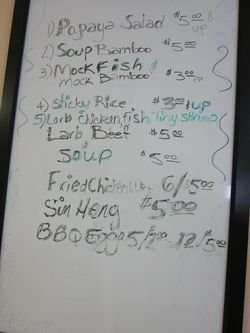 1) Papaya Salad $5.00 & up
2) Soup Bamboo $5.00
3) Mock Fish &
Mock Bamboo $3.00
4) Sticky Rice $3.00 & up
5) Larb Chicken fish Tiny Shrimp
Larb Beef $5.00
& Soup $5.00
Fried Chicken 6/$5.00
Sin Heng $5.00
BBQ Eggs 5/2.00 12/5.00